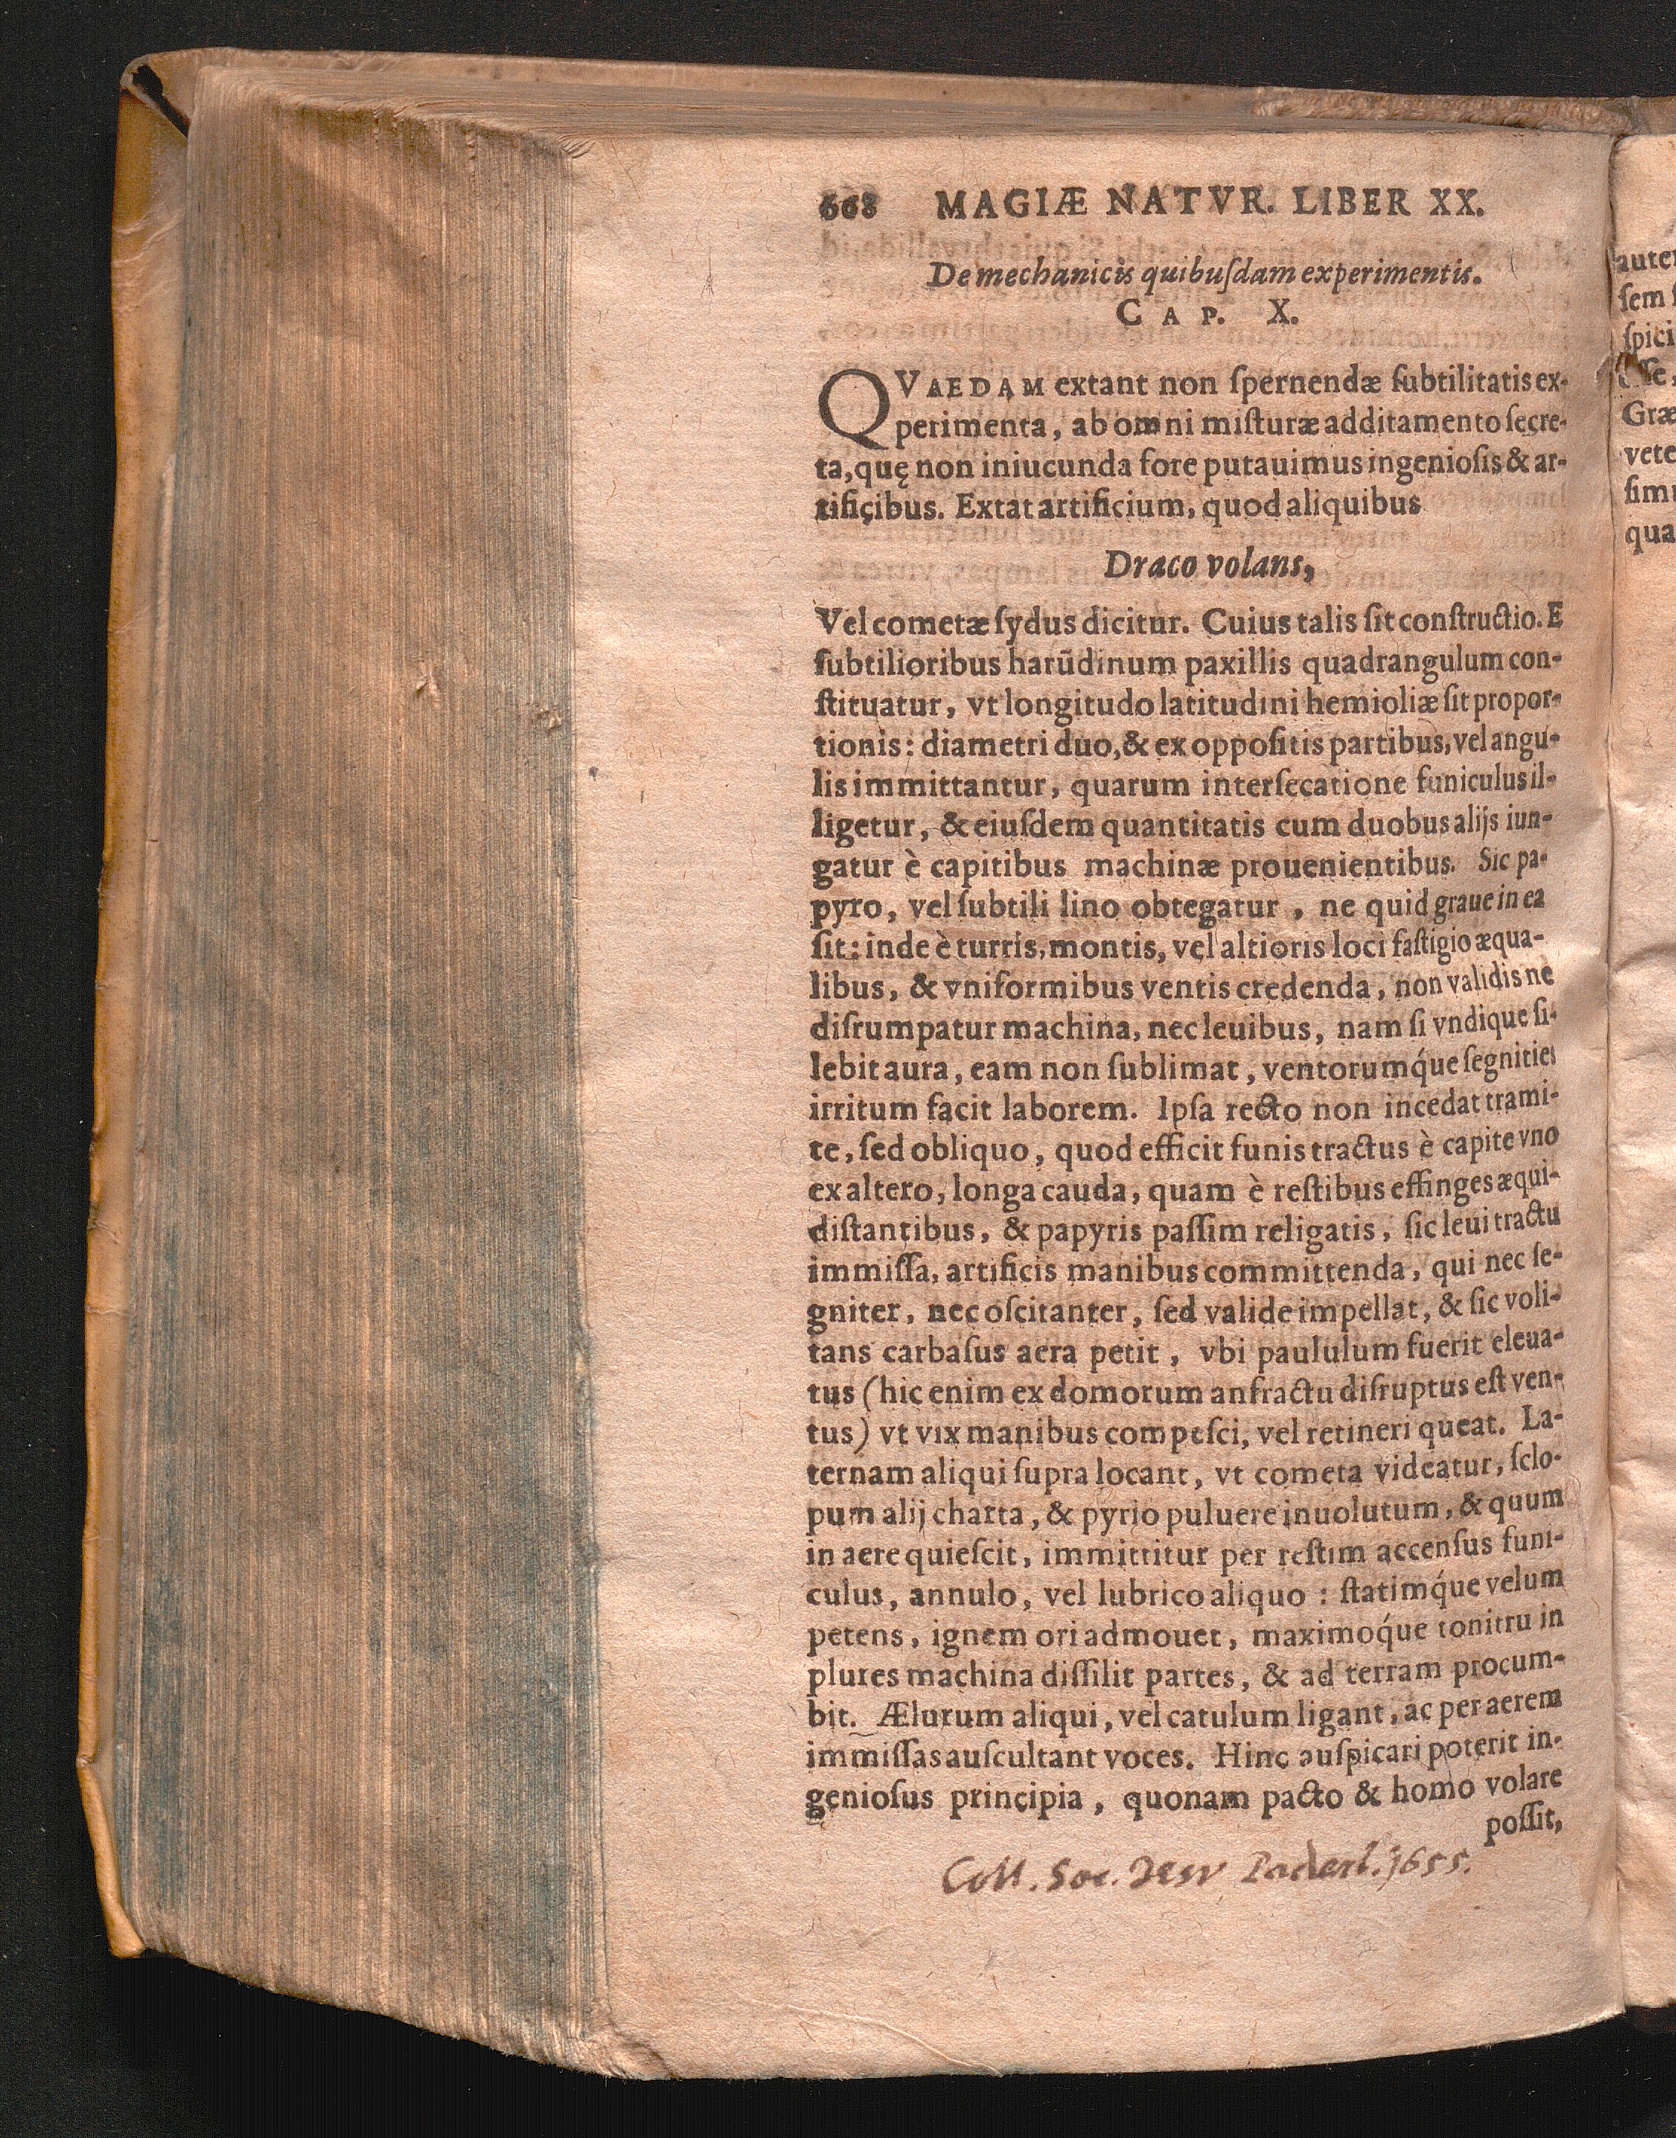 668 MAGIÆ NATVR. LIBER XX.
De mechanicis quibuſdam experimentis.
CAP. X.
QVAEDAM extant non ſpernendæ ſubtilitatis ex-
perimenta, ab omni miſturæ additamento ſecre-
ta, quę non iniucunda fore putauimus ingenioſis & ar-
tificibus. Extat artificium, quod aliquibus
Draco volans,
Vel cometæ ſydus dicitur. Cuius talis ſit conſtructio. E
ſubtilioribus harūdinum paxillis quadrangulum con-
ſtituatur, vt longitudo latitudini hemioliæ ſit propor-
tionis: diametri duo, & ex oppoſitis partibus, vel angu-
lis immittantur, quarum interſecatione funiculus il-
ligetur, & eiuſdem quantitatis cum duobus alijs iun-
gatur è capitibus machinæ prouenientibus. Sic pa-
pyro, vel ſubtili lino obtegatur, ne quid graue in ea
ſit: inde è turris, montis, vel altioris loci faſtigio æqua-
libus, & vniformibus ventis credenda, non validis ne
diſrumpatur machina, nec leuibus, nam ſi vndique ſi-
lebit aura, eam non ſublimat, ventorumq́ue ſegnities
irritum facit laborem. Ipſa recto non incedat trami-
te, ſed obliquo, quod efficit funis tractus è capite vno
ex altero, longa cauda, quam è reſtibus effinges æqui-
diſtantibus, & papyris paſſim religatis, ſic leui tractu
immiſſa, artificis manibus committenda, qui nec ſe-
gniter, nec oſcitanter, ſed valide impellat, & ſic voli-
tans carbaſus aera petit, vbi paululum fuerit eleua-
tus (hic enim ex domorum anfractu diſruptus eſt ven-
tus) vt vix manibus compeſci, vel retineri queat. La-
ternam aliqui ſupra locant, vt cometa videatur, ſclo-
pum alij charta, & pyrio puluere inuolutum, & quum
in aere quieſcit, immittitur per reſtim accenſus funi-
culus, annulo, vel lubrico aliquo : ſtatimq́ue velum
petens, ignem ori admouet, maximoq́ue tonitru in
plures machina diſſilit partes, & ad terram procum-
bit. Ælurum aliqui, vel catulum ligant, ac per aerem
immiſſas auſcultant voces. Hinc auſpicari poterit in-
genioſus principia, quonam pacto & homo volare
poſſit,
Coll. Soc. Jesu Paderb. 1655.
aute
ſem
ſpici
Græ
vete
ſim
qua